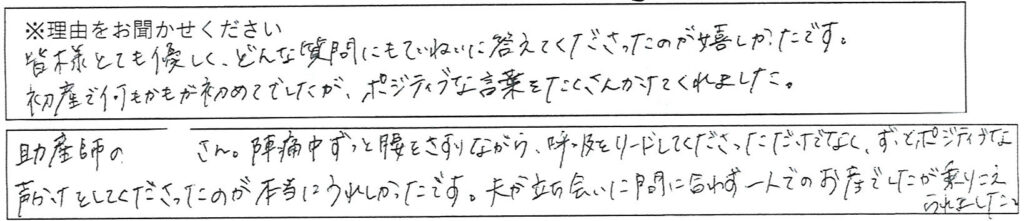 ※理由をお聞かせください
皆様とても優しく、どんな質問にもていねいに答えてくださったのが嬉しかったです。
初産で何もかもが初めてでしたが、ポジティブな言葉をたくさんかけてくれました。
助産師の さん。陣痛中ずっと腰をさすりながら、呼吸をリードしてくださっただけでなく、ずっとポジティブな
声かけをしてくださったのが本当にうれしかったです。夫が立ち会いに間に合わず一人でのお産でしたが乗りこえ
られました。